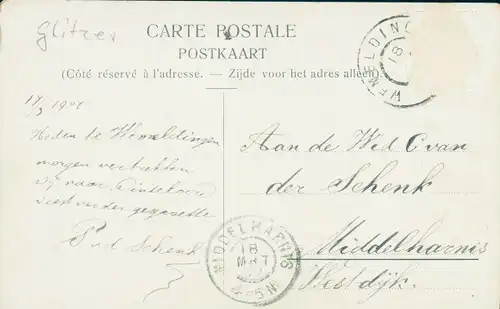 Glitzer
CARTE POSTALE
POSTKAART
(Côté réservé à l'adresse. — Zijde voor het adres alleen)
WEMELDINGE
18
17/3 190
Heden te Wemeldingen
morgen vertrekken
wij naar
verder
P v d Schenk
Aan de Wed C van
der Schenk
Middelharnis
Westdijk.
MIDDELHARNIS
18
MRT
4-5N